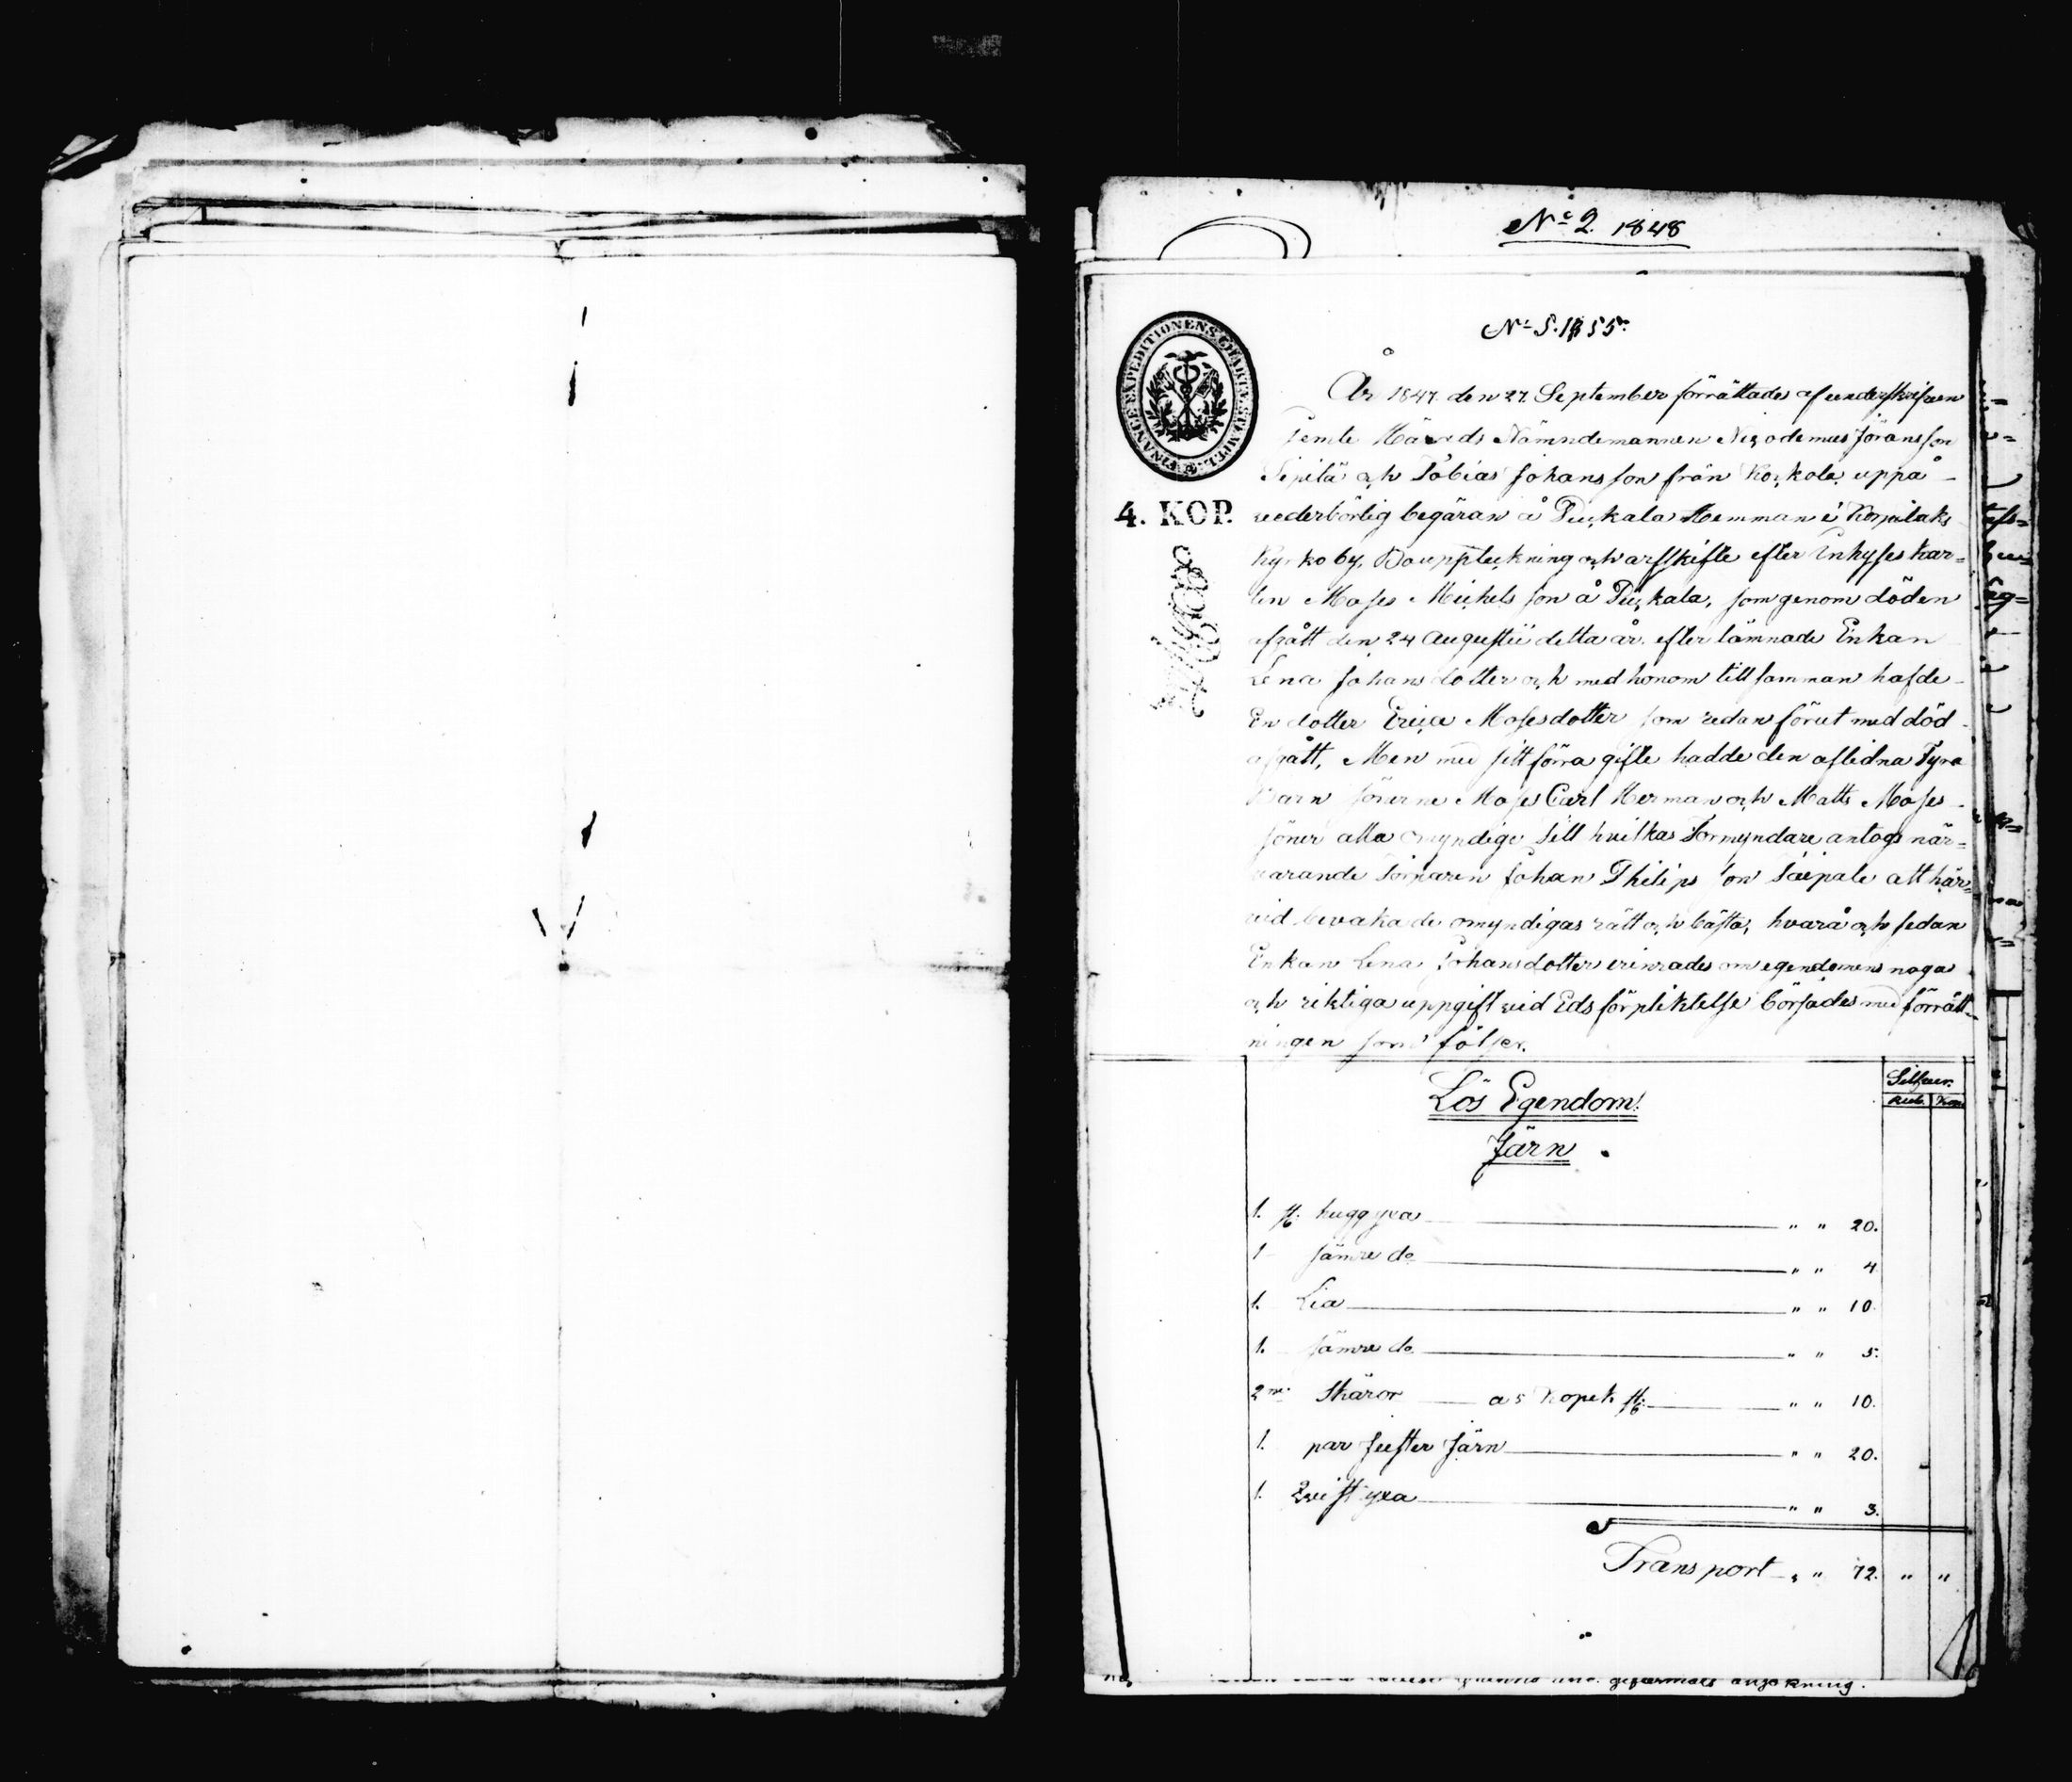 No 2. 1848
No 5. 1855.
FINANCE EXPEDITIONENS CHARTÆ STÄMPEL
4. KOP.
År 1847 den 27 September förrättades af underskrifven
jemte Härads Nämndemannen Nicodemus Jöransson
Sipilä och Tobias Johansson från Korkola uppå
vederbörlig begäran å Puckala Hemman i Korpilaks
Kyrkoby, Bouppteckning och arfskifte efter Inhyses Kar-
len Moses Michelsson å Puckala, som genom döden
afgått den 24 Augustii detta år. efter lämnade Enkan
Lena Johansdotter och med honom tillsamman hafde
En dotter Erica Mosesdotter som redan förut med död
afgått, Men med sitt förra gifte hadde den aflidna Fyra
Barn sönerne Moses Carl Herman och Matts Moses
söner alla omyndige till hvilkas Förmyndare antogs när-
varande Torparen Johan Philipsson Saipale att här-
vid bevaka de omyndigas rätt och bästa, hvarå och sedan
Enkan Lena Johansdotter erinrades om egendomens noga
och riktiga uppgift vid Eds förpliktelse börjades med förrätt-
ningen som följer.
Lös Egendom.
Silfver.
Rub. Kop.
Järn
1. st. huggyxa " " 20.
1 sämre do " " 4
1. Lia " " 10.
1. sämre do " " 5.
2ne Skäror a 5 Kopek st. " " 10.
1. par fuster Järn " " 20.
1. Qvist yxa " " 3.
Transport " " 72. " "